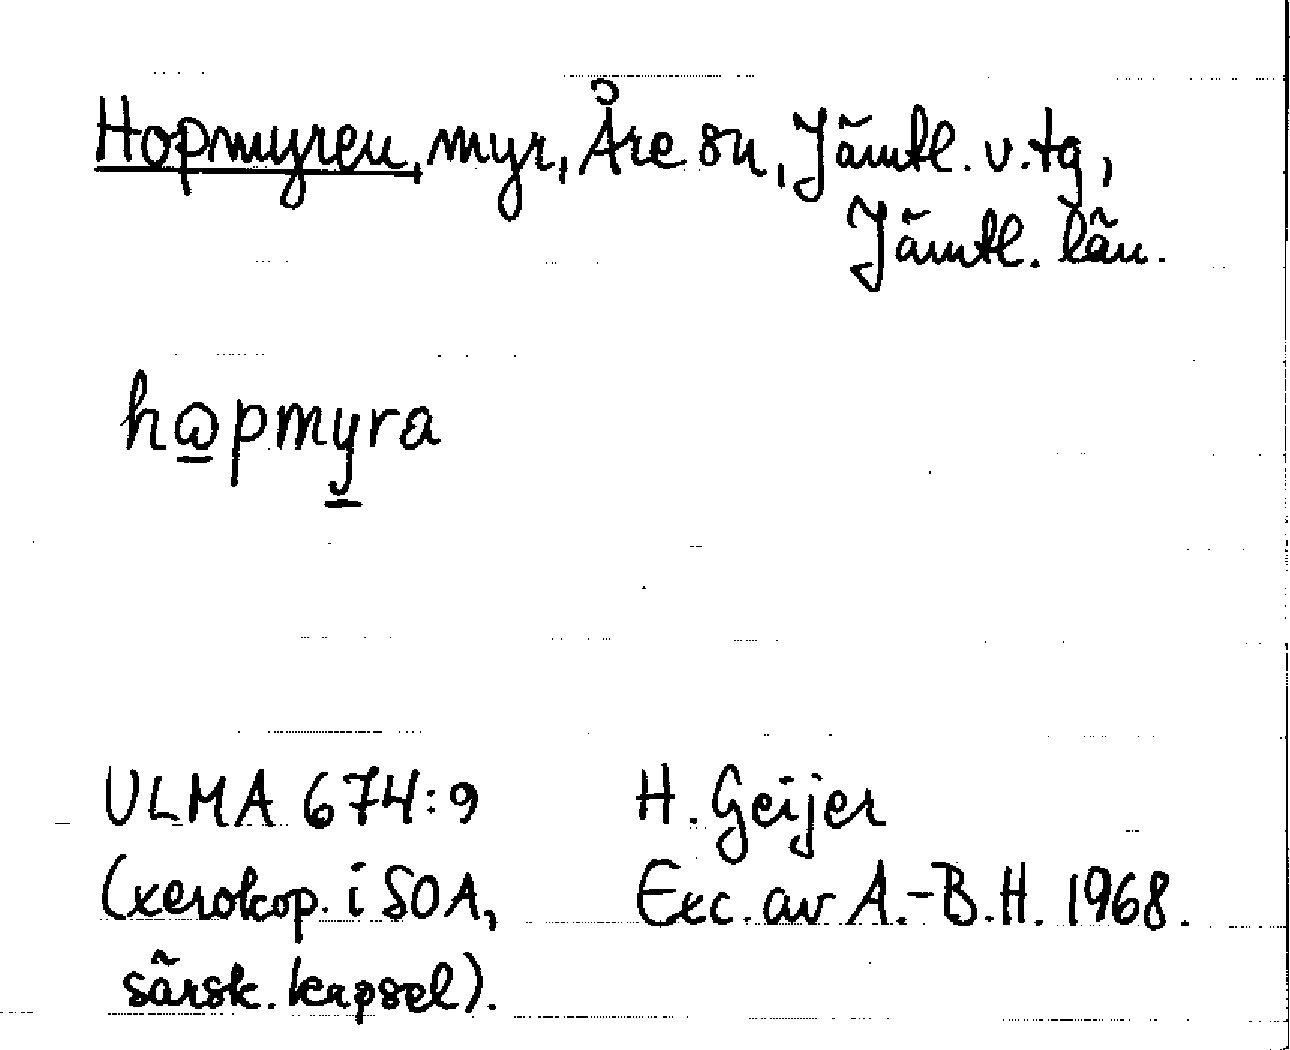 Hopmyren, myr, Åre sn, Jämtl. v. tg,
Jämtl. län.
hωpmyra
ULMA 674:9 H. Geijer
(xerokop. i SOA, Exc. av A.-B.H. 1968.
särsk. kapsel).